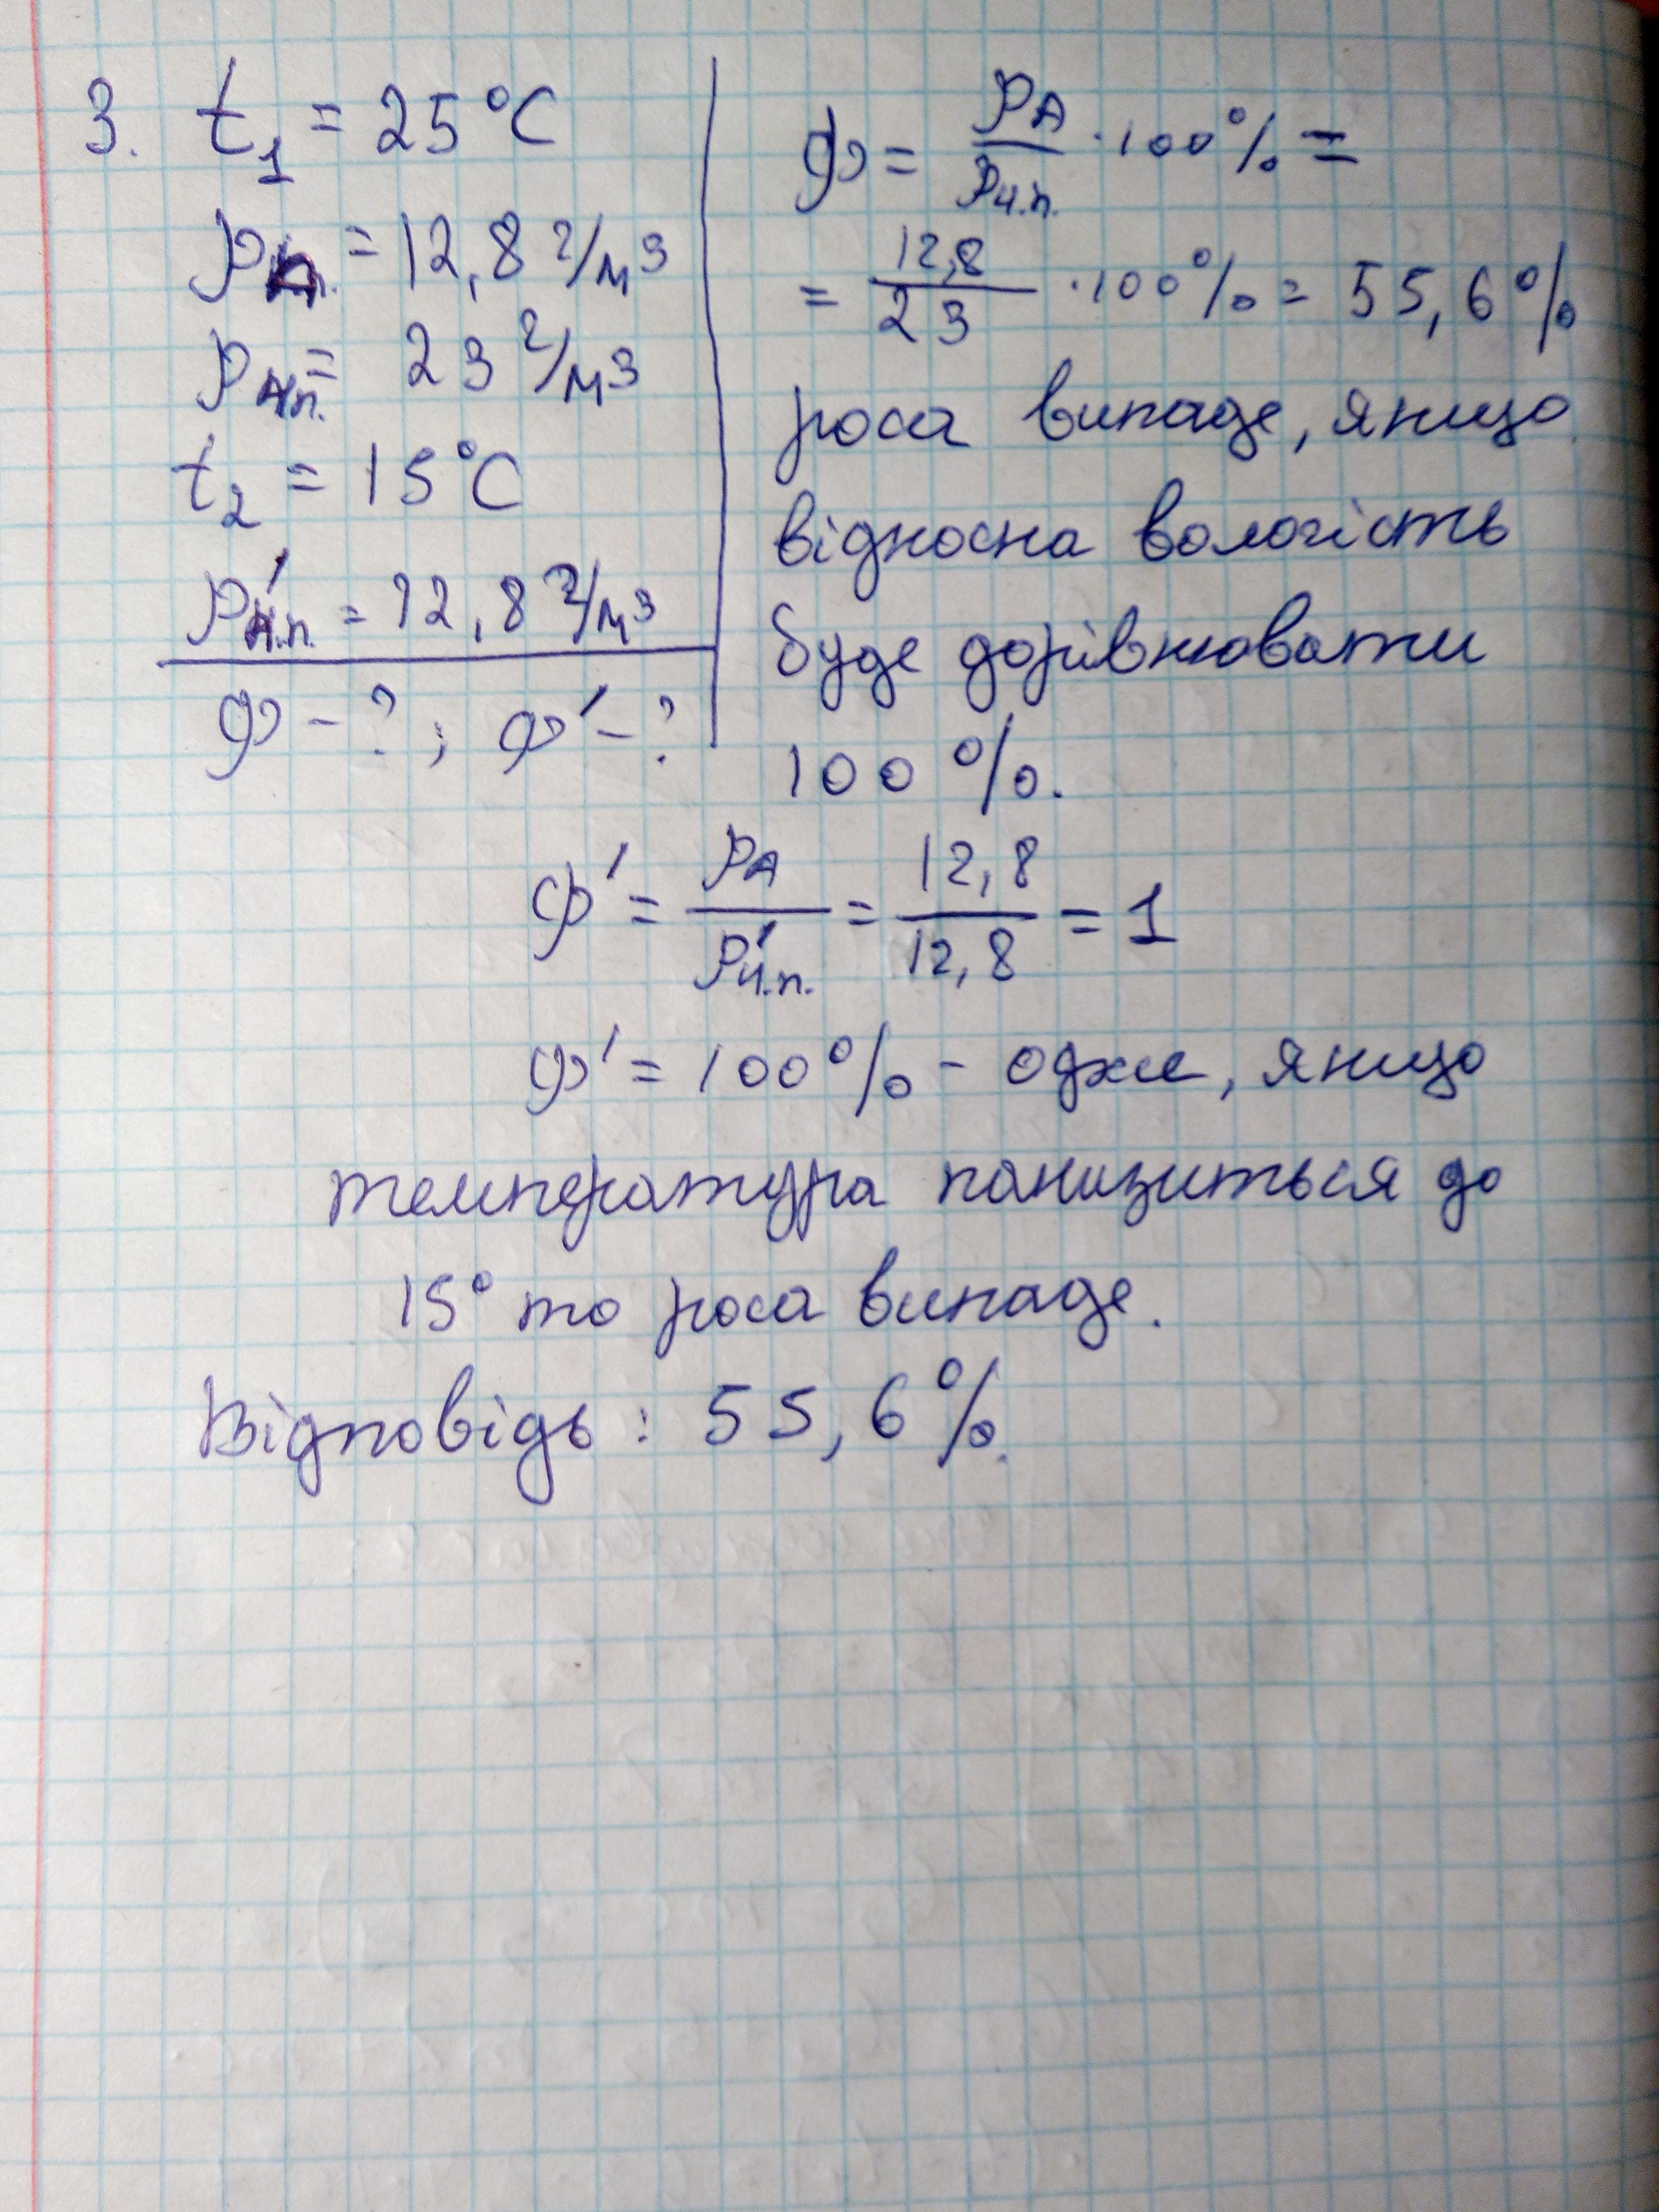 3. t₁ = 25°C
ρп. = 12,8 г/м³
ρн.п. = 23 г/м³
t₂ = 15°C
ρ'н.п. = 12,8 г/м³
φ - ? ; φ' - ?
φ = ρA / ρн.п. · 100% =
= 12,8 / 23 · 100% = 55,6%
роса випаде, якщо
відносна вологість
буде дорівнювати
100 %.
φ' = ρA / ρ'н.п. = 12,8 / 12,8 = 1
φ' = 100% - одже, якщо
температура понизиться до
15° то роса випаде.
Відповідь : 55,6%.